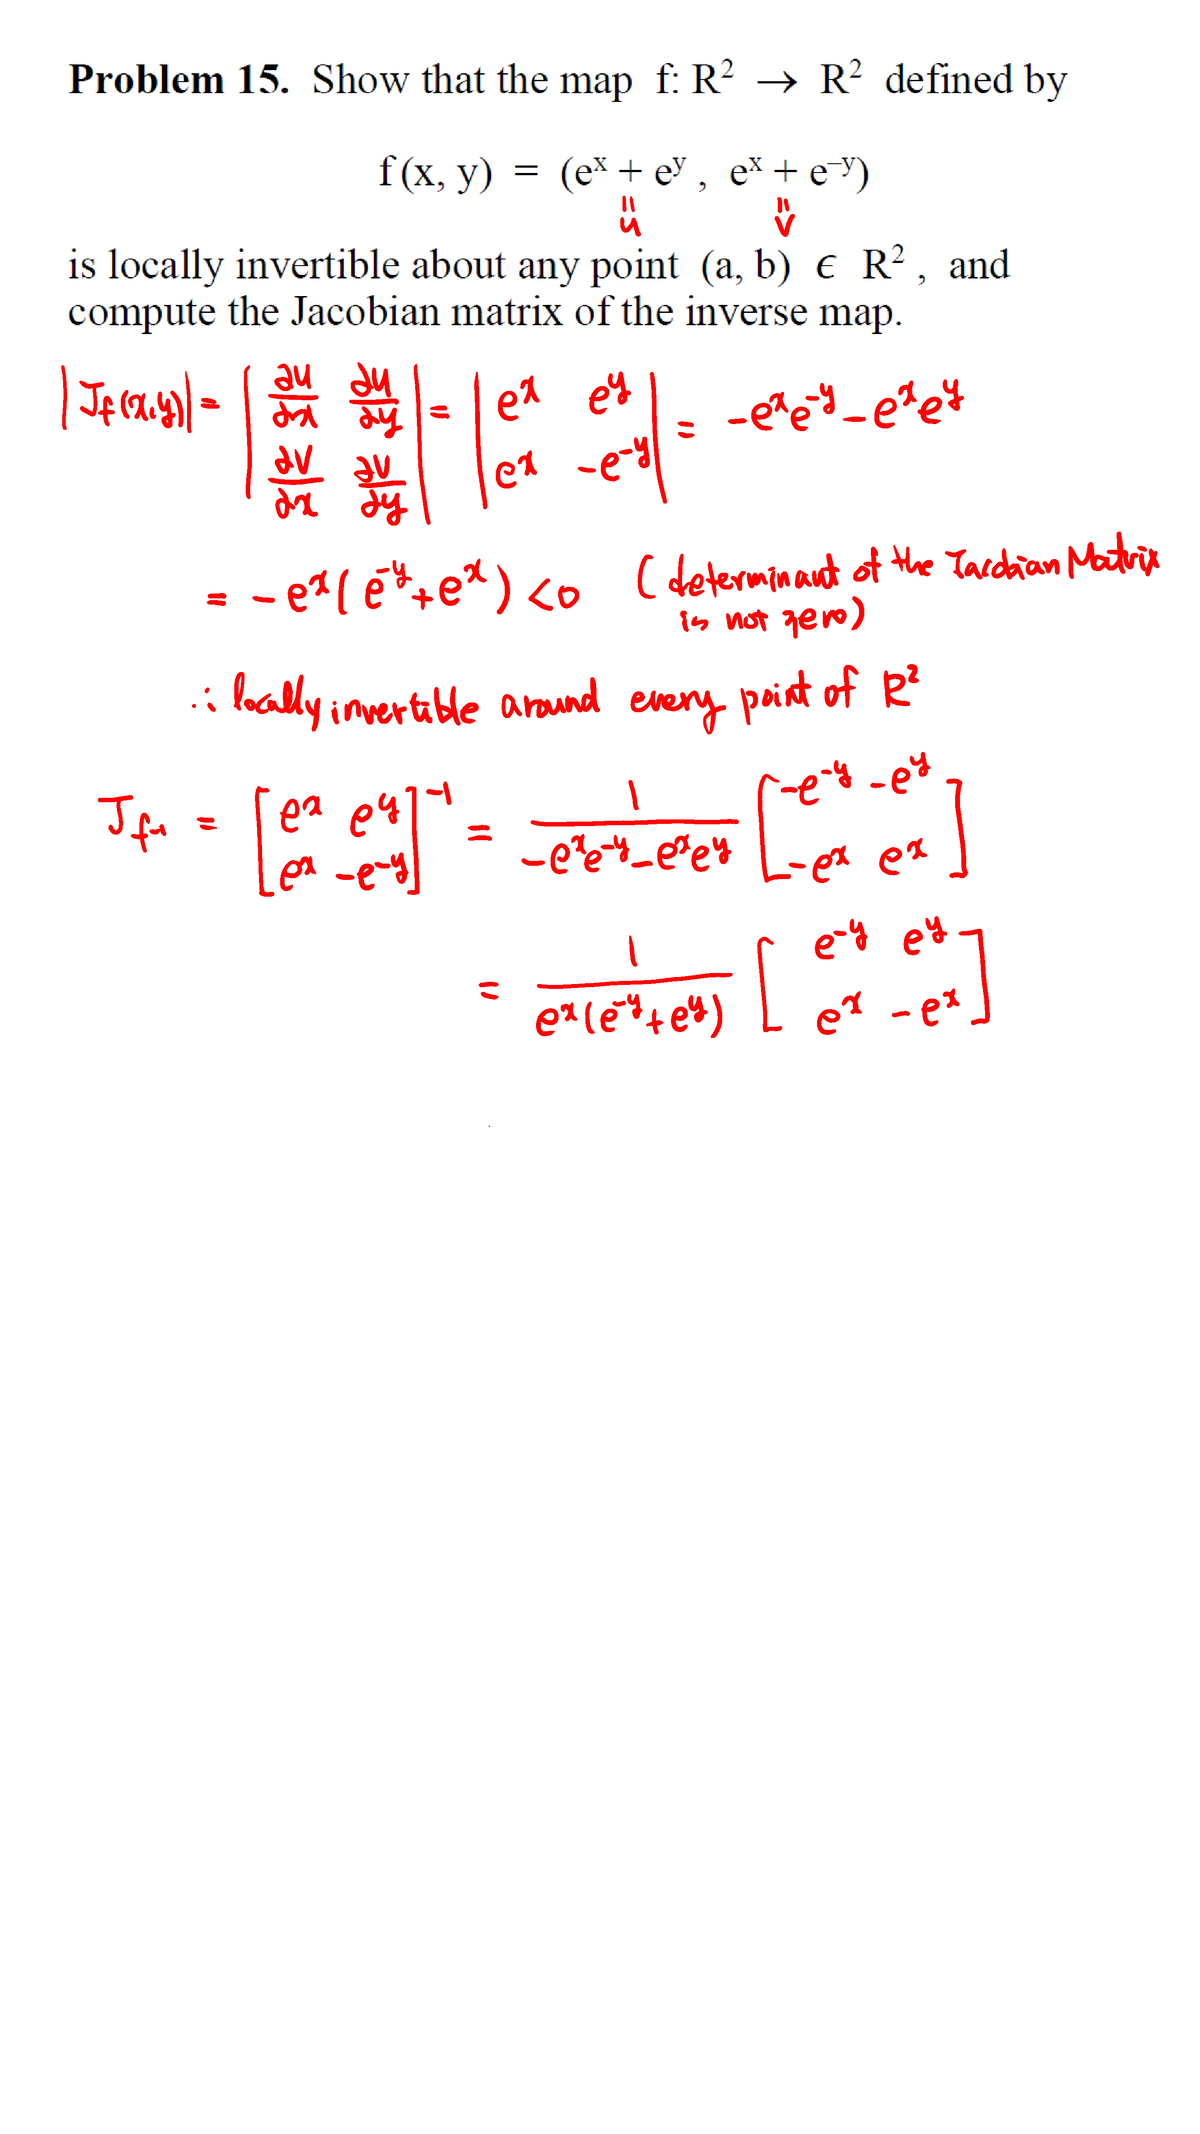 Problem 15. Show that the map f: R² → R² defined by
f (x, y) = (eˣ + eʸ , eˣ + e⁻ʸ)
= =
u v
is locally invertible about any point (a, b) ϵ R² , and
compute the Jacobian matrix of the inverse map.
|J_f(x,y)| = | ∂u/∂x ∂u/∂y ; ∂v/∂x ∂v/∂y | = | eˣ eʸ ; eˣ -e⁻ʸ | = -eˣe⁻ʸ - eˣeʸ
= - eˣ( e⁻ʸ + eˣ ) < 0 ( determinant of the Jacobian Matrix
is not zero)
∴ locally invertible around every point of R²
J_f⁻¹ = [ eˣ eʸ ; eˣ -e⁻ʸ ]⁻¹ = 1/(-eˣe⁻ʸ - eˣeʸ) [ -e⁻ʸ -eʸ ; -eˣ eˣ ]
= 1/(eˣ(e⁻ʸ + eʸ)) [ e⁻ʸ eʸ ; eˣ -eˣ ]